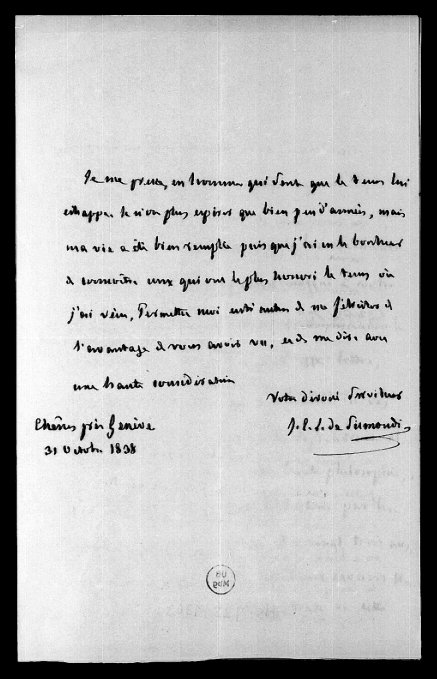 Je me presse, en homme qui sent que le tems lui
échappe. Je n'ai plus espérer que bien peu d'années, mais
ma vie a été bien remplie puis que j'ai eu le bonheur
de connoître ceux qui ont le plus honoré le tems où
j'ai vécu, Permettez moi entr'autres de me féliciter de
l'avantage de vous avoir vu, et de me dire avec
une haute considération
Votre dévoué Serviteur
J. C. L. de Sismondi
Chênes près Genève
31 Octobre 1838